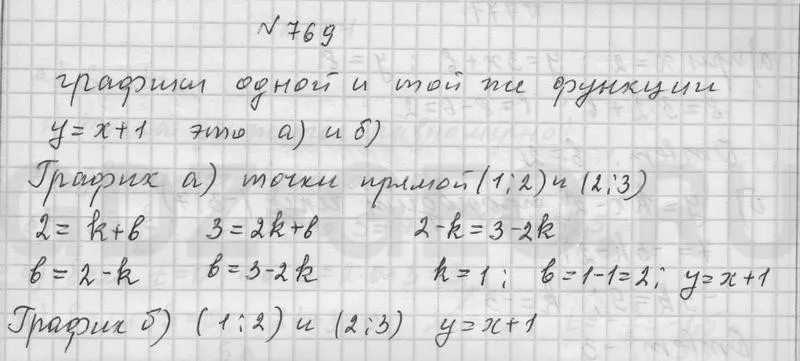 № 769
графики одной и той же функции
y = x+1 это а) и б)
График а) точки прямой (1;2) и (2;3)
2 = k+b 3 = 2k+b 2-k = 3-2k
b = 2-k b = 3-2k k = 1; b = 1-1=2; y = x+1
График б) (1;2) и (2;3) y = x+1